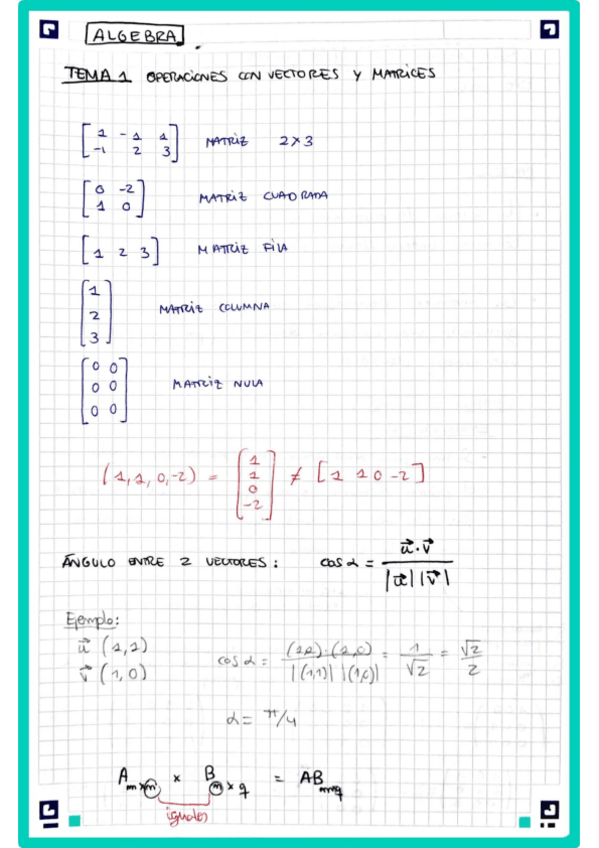 ALGEBRA
TEMA 1 OPERACIONES CON VECTORES Y MATRICES
[1 -1 1; -1 2 3] MATRIZ 2x3
[0 -2; 1 0] MATRIZ CUADRADA
[1 2 3] MATRIZ FILA
[1; 2; 3] MATRIZ COLUMNA
[0 0; 0 0; 0 0] MATRIZ NULA
(1,1,0,-2) = [1; 1; 0; -2] ≠ [1 1 0 -2]
ÁNGULO ENTRE 2 VECTORES: cos α = u⃗·v⃗ / |u⃗| |v⃗|
Ejemplo:
u⃗ (1,1)
v⃗ (1,0)
cos α = (1,1)·(1,0) / |(1,1)| |(1,0)| = 1/√2 = √2/2
α = π/4
A m×n × B n×q = AB m×q
iguales